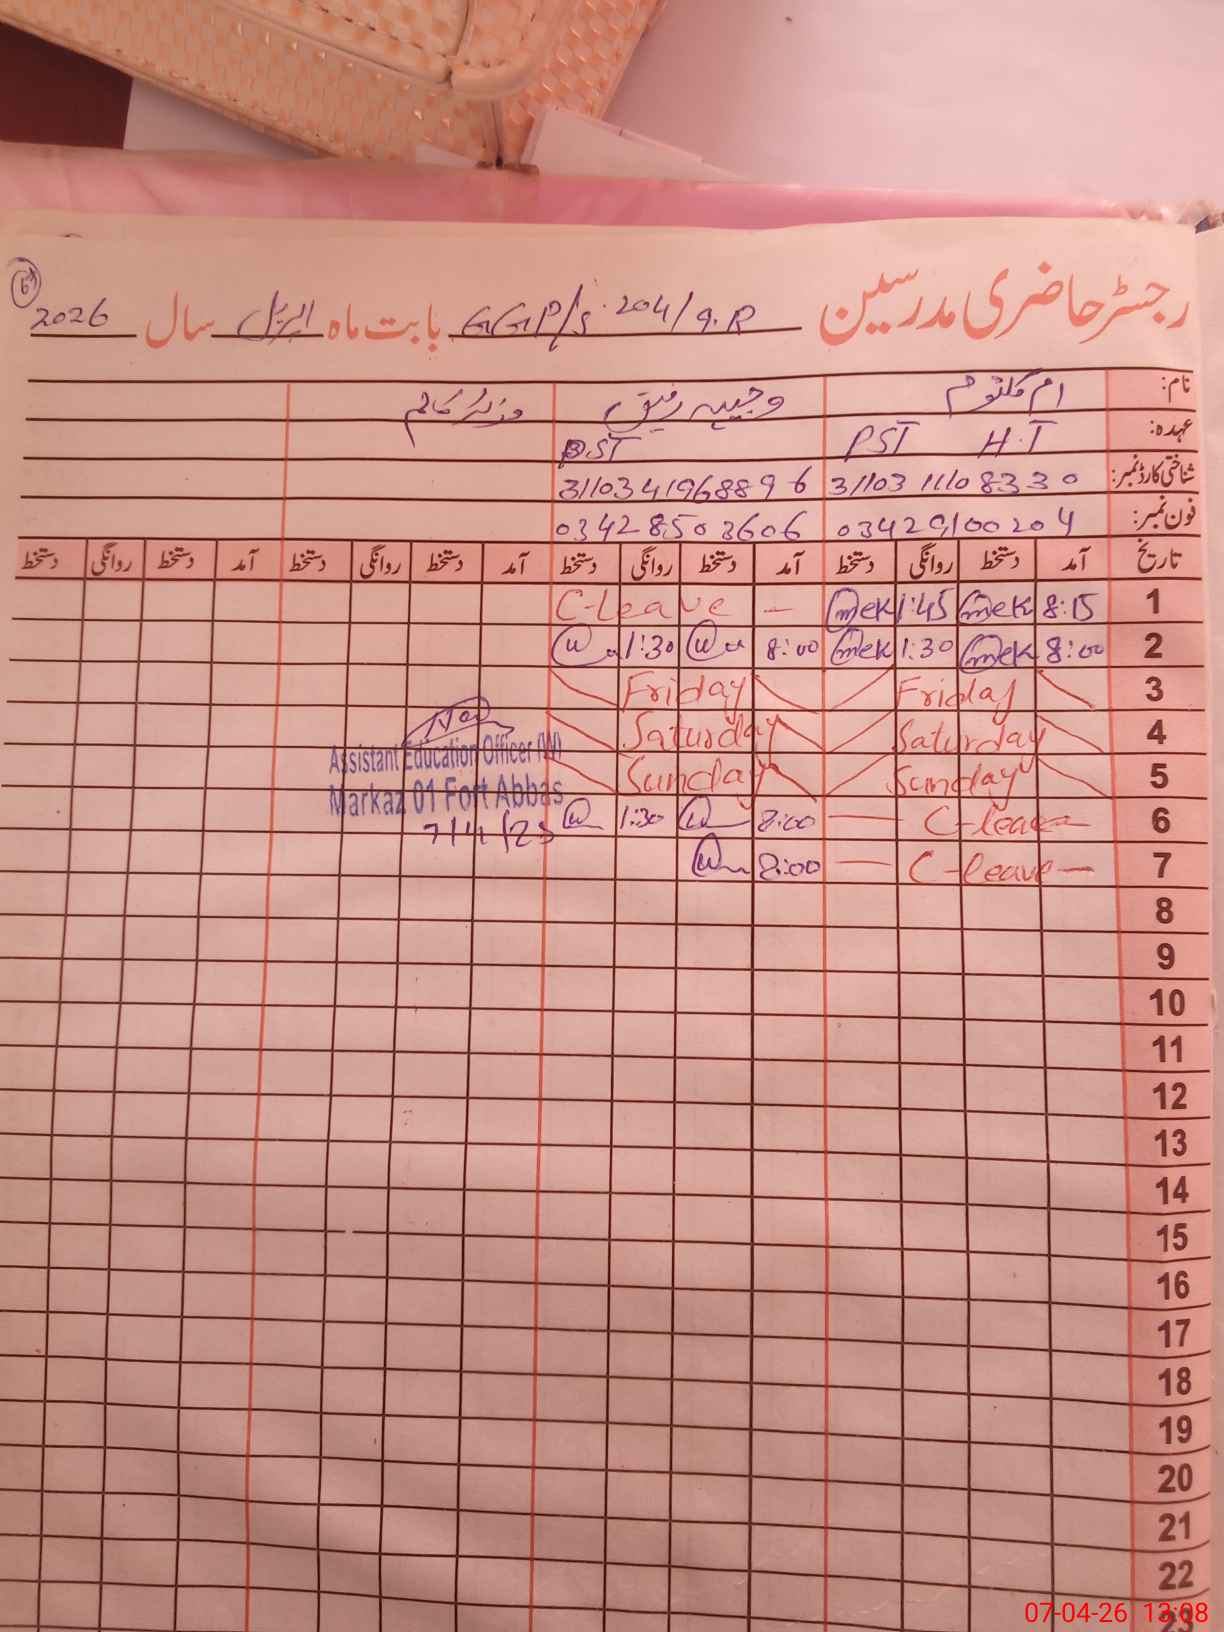 رجسٹر حاضری مدرسین GGP/S 204/9.R بابت ماہ اپریل سال 2026
نام: ام کلثوم وجیہہ رفیق
عہدہ: PST H.T P.ST
شناختی کارڈ نمبر: 31103 1110833 0 3110341968896
فون نمبر: 03429100204 03428503606
تاریخ آمد دستخط روانگی دستخط آمد دستخط روانگی دستخط آمد دستخط روانگی دستخط آمد دستخط روانگی دستخط
1 8:15 1:45 C-Leave
2 8:00 1:30 8:00 1:30
3 Friday Friday
4 Saturday Saturday
5 Sunday Sunday
6 C-leave 8:00 1:30
7 C-leave 8:00
8
9
10
11
12
13
14
15
16
17
18
19
20
21
22
23
Assistant Education Officer (W)
Markaz 01 Fort Abbas
07-04-26 13:08